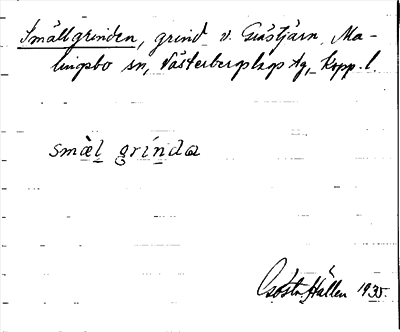 Smällgrinden, grind v. Gåstjärn, Ma-
lingsbo sn, Västerbergslags dg, Kopp. l.
smæ̀l grínda
Gösta Hallen 1935.